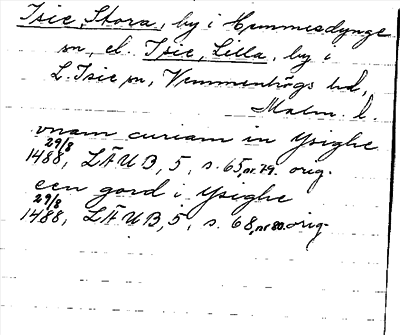 Isie, Stora, by i Hemmesdynge
sn, el. Isie, Lilla, by i
L. Isie sn, Vemmenhögs hd,
Malm. l.
vnam curiam in ysighe
29/8
1488, LÄUB, 5, s. 65, nr. 79. orig.
een gord i ysighe
29/8
1488, LÄUB, 5, s. 68, nr 80. orig.